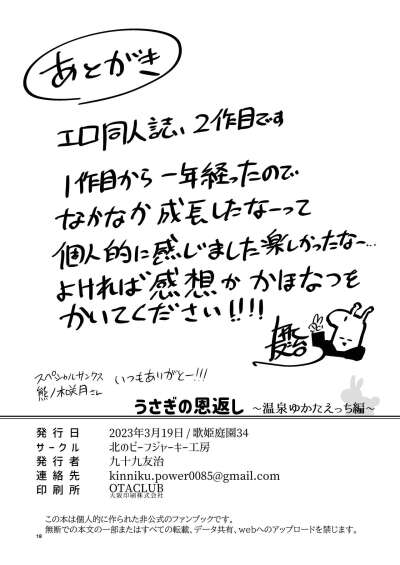 あとがき
エロ同人誌、2作目です
1作目から一年経ったので
なかなか成長したなーって
個人的に感じました楽しかったなー…
よければ感想か かほなつを
かいてください!!!!
スペシャルサンクス
熊ノ木咲月さん
いつもありがとー!!!
うさぎの恩返し ～温泉ゆかたえっち編～
発行日 2023年3月19日/歌姫庭園34
サークル 北のビーフジャーキー工房
発行者 九十九友治
連絡先 kinniku.power0085@gmail.com
印刷所 OTACLUB
大阪印刷株式会社
この本は個人的に作られた非公式のファンブックです。
無断での本文の一部またはすべての転載、データ共有、webへのアップロードを禁じます。